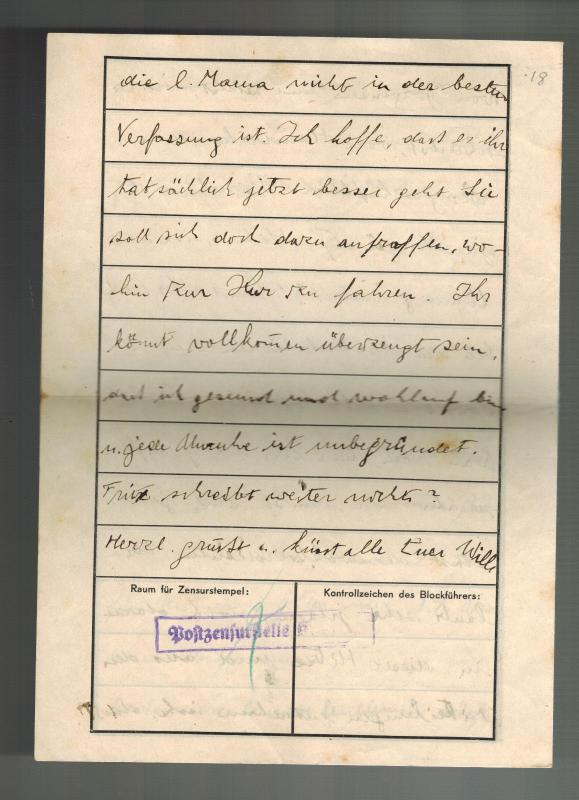 18
die l. Mama nicht in der besten
Verfassung ist. Ich hoffe, dass es ihr
tatsächlich jetzt besser geht Sie
soll sich doch dazu aufraffen, wo-
hin zur Kur zu fahren. Ihr
könnt vollkomen überzeugt sein,
dass ich gesund und wohlauf bin
u. jede Unruhe ist unbegründet.
Fritz schreibt weiter nichts?
Herzl. grüsst u. küsst alle Euer Willi
Raum für Zensurstempel:
Kontrollzeichen des Blockführers:
Postzensurstelle